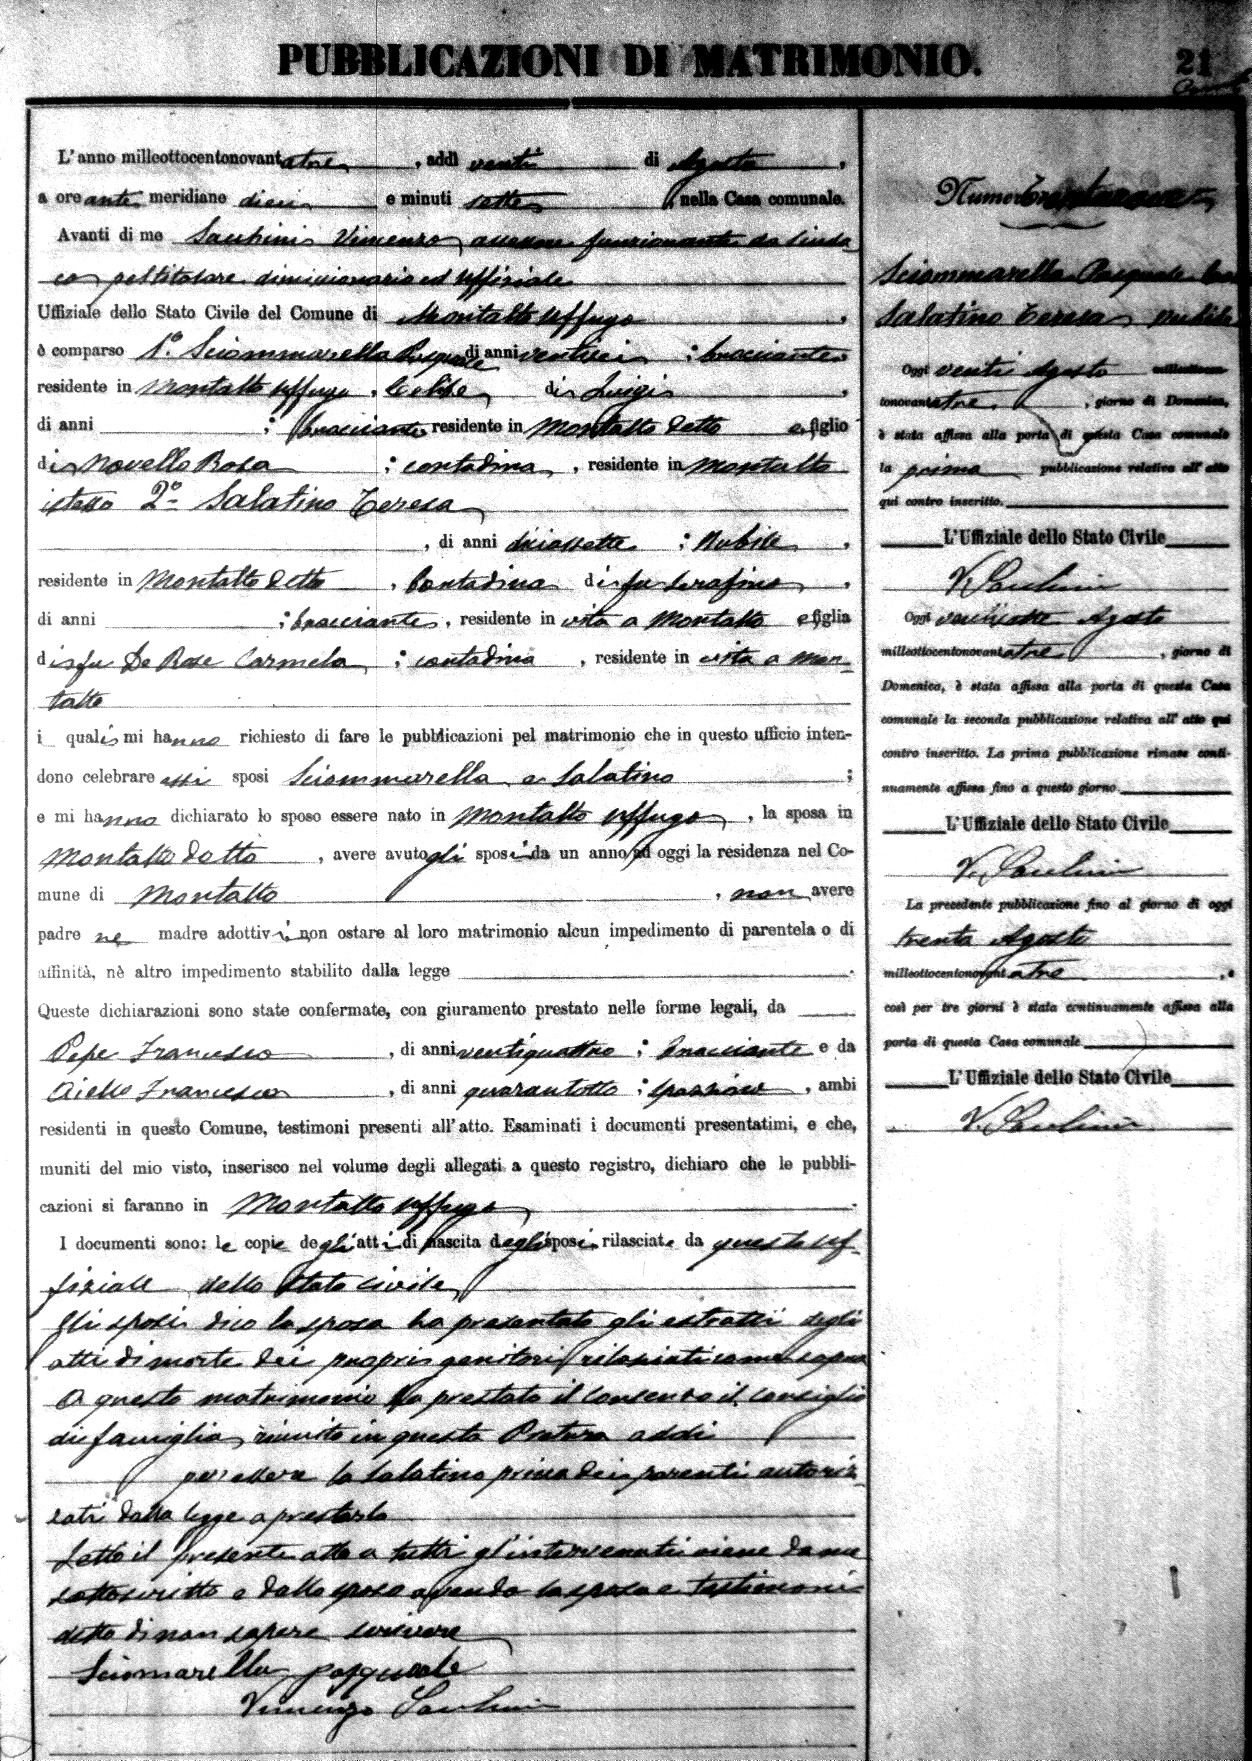 PUBBLICAZIONI DI MATRIMONIO.
21
L'anno milleottocentonovantatre, addì venti di Agosto,
a ore anti meridiane dieci e minuti sette, nella Casa comunale.
Avanti di me Vincenzo assessore funzionante da Sinda
co pel titolare dimissionario ed uffiziale
Uffiziale dello Stato Civile del Comune di Montalto Uffugo,
è comparso 1.o Sciammarella Pasquale di anni ventisei; bracciante
residente in Montalto Uffugo, Celibe, di Luigi,
di anni ; bracciante residente in Montalto detto e figlio
di Novello Rosa ; contadina, residente in Montalto
istesso 2o Salatino Teresa
, di anni diciassette ; Nubile,
residente in Montalto detto, Contadina di fu Serafino,
di anni ; bracciante, residente in vita a Montalto e figlia
di fu De Rose Carmela ; contadina, residente in vita a Mon-
talto
i quali mi hanno richiesto di fare le pubblicazioni pel matrimonio che in questo ufficio inten-
dono celebrare essi sposi Sciammarella e Salatino ;
e mi hanno dichiarato lo sposo essere nato in Montalto Uffugo, la sposa in
Montalto detto, avere avuto gli sposi da un anno ad oggi la residenza nel Co-
mune di Montalto, non avere
padre ne madre adottivi, non ostare al loro matrimonio alcun impedimento di parentela o di
affinità, nè altro impedimento stabilito dalla legge.
Queste dichiarazioni sono state confermate, con giuramento prestato nelle forme legali, da
Pepe Francesco, di anni ventiquattro ; bracciante e da
Aiello Francesco, di anni quarantotto ; spazzino, ambi
residenti in questo Comune, testimoni presenti all'atto. Esaminati i documenti presentatimi, e che,
muniti del mio visto, inserisco nel volume degli allegati a questo registro, dichiaro che le pubbli-
cazioni si faranno in Montalto Uffugo.
I documenti sono: le copie degli atti di nascita degli sposi rilasciate da questo Uf-
fiziale dello Stato Civile
Gli sposi dico la sposa ha presentato gli estratti degli
atti di morte dei proprii genitori rilasciati come sopra
A questo matrimonio ha prestato il consenso il consiglio
di famiglia, riunito in questa Pretura addi
per essere la Salatino priva dei parenti autoriz-
zati dalla legge a prestarlo
Letto il presente atto a tutti gl'intervenuti viene da me
sottoscritto e dallo sposo avendo la sposa e testimoni
detto di non sapere scrivere
Sciomarella pasquale
Vincenzo
Numero
Sciammarella Pasquale
Salatino Teresa nubile
Oggi venti Agosto milleotto-
tonovantatre, giorno di Domenica,
è stata affissa alla porta di questa Casa comunale
la prima pubblicazione relativa all'atto
qui contro inscritto.
L'Uffiziale dello Stato Civile
V.
Oggi ventisette Agosto
milleottocentonovantatre, giorno di
Domenica, è stata affissa alla porta di questa Casa
comunale la seconda pubblicazione relativa all'atto qui
contro inscritto. La prima pubblicazione rimase conti-
nuamente affissa fino a questo giorno.
L'Uffiziale dello Stato Civile
V.
La precedente pubblicazione fino al giorno di oggi
trenta Agosto
milleottocentonovantatre, e
così per tre giorni è stata continuamente affissa alla
porta di questa Casa comunale
L'Uffiziale dello Stato Civile
V.